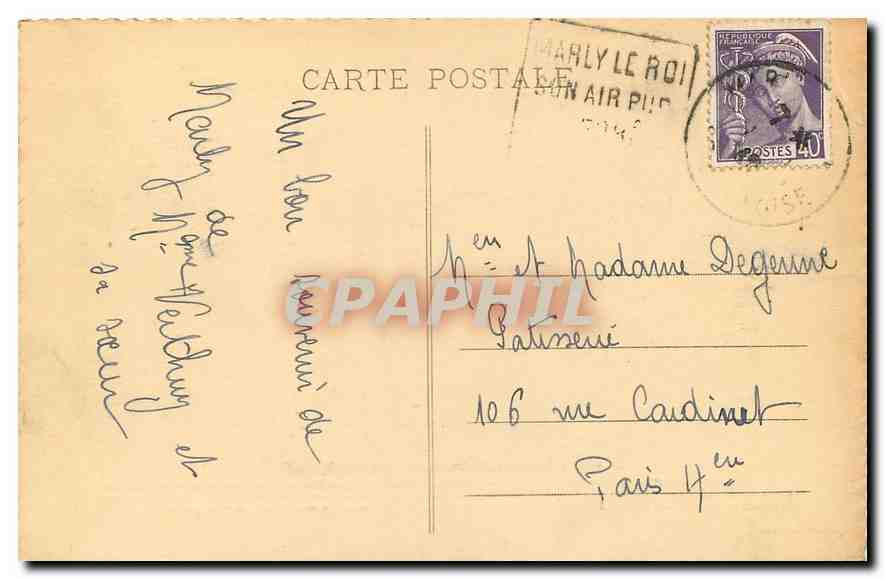 CARTE POSTALE
MARLY LE ROI
SON AIR PUR
REPUBLIQUE
FRANÇAISE
POSTES 40c
OISE
Un bon souvenir de
Marly
de Mme
et
sa sœur
Men et Madame Degenne
Patisserie
106 rue Cardinet
Paris 17en
CPARAPHIL